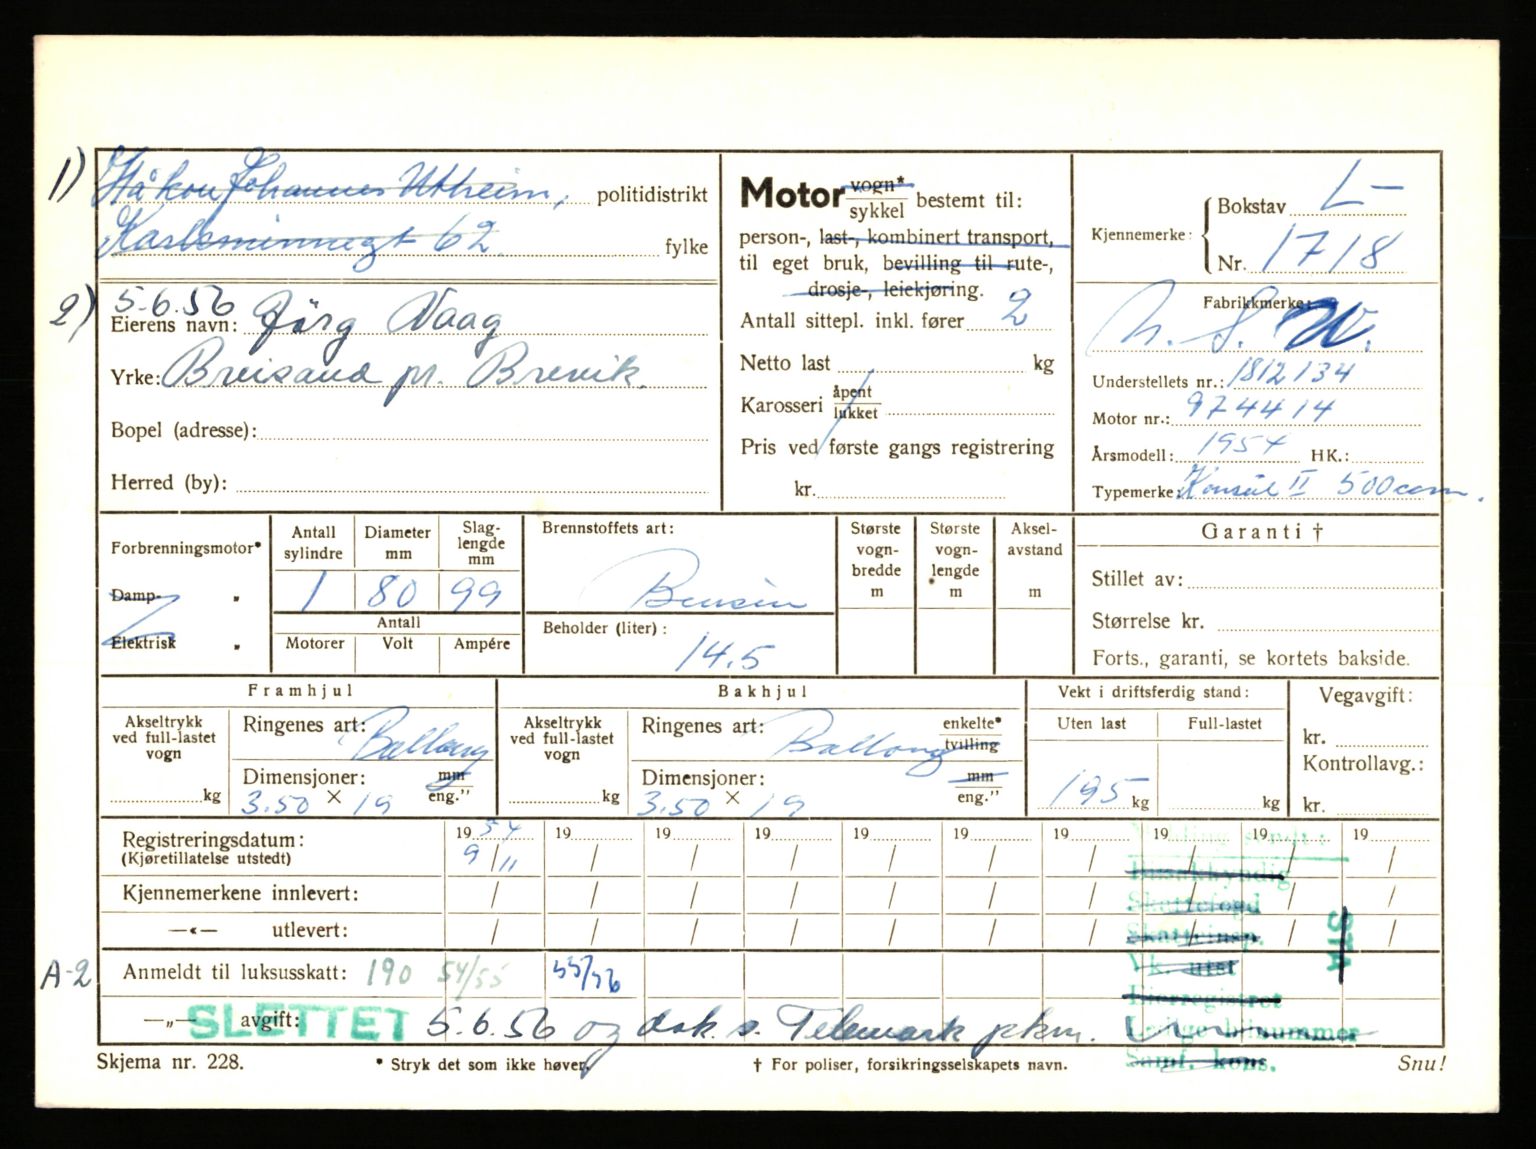 1) Håkon Johannes Utheim, politidistrikt
Karlsminnegt 62. fylke
2) 5.6.56
Eierens navn: Jörg Vaag
Yrke: Breisand pr. Brevik.
Bopel (adresse):
Herred (by):
Motor vogn* sykkel bestemt til:
person-, last-, kombinert transport,
til eget bruk, bevilling til rute-,
drosje-, leiekjøring.
Antall sittepl. inkl. fører 2
Netto last kg
Karosseri åpent lukket
Pris ved første gangs registrering
kr.
Kjennemerke: Bokstav L-
Nr. 1718
Fabrikkmerke:
N. S. U.
Understellets nr.: 1812134
Motor nr.: 974414
Årsmodell: 1954 HK.:
Typemerke: Konsul II 500ccm.
Forbrenningsmotor*
Damp- „
Elektrisk „
Antall sylindre 1
Diameter mm 80
Slag-lengde mm 99
Antall
Motorer Volt Ampére
Brennstoffets art:
Bensin
Beholder (liter):
14.5
Største vogn-bredde m
Største vogn-lengde m
Aksel-avstand m
Garanti †
Stillet av:
Størrelse kr.
Forts., garanti, se kortets bakside.
Framhjul
Akseltrykk ved full-lastet vogn kg
Ringenes art: Ballong
Dimensjoner: mm eng."
3.50 × 19
Bakhjul
Akseltrykk ved full-lastet vogn kg
Ringenes art: Ballong enkelte* tvilling
Dimensjoner: mm eng."
3.50 × 19
Vekt i driftsferdig stand:
Uten last Full-lastet
195 kg kg
Vegavgift:
kr.
Kontrollavg.:
kr.
Registreringsdatum: 1954 19 19 19 19 19 19 19 19 19
(Kjøretillatelse utstedt) 9/11 / / / / / / / / /
Kjennemerkene innlevert: / / / / / / / / / /
—«— utlevert: / / / / / / / / / /
A-2 Anmeldt til luksusskatt: 190 54/55 55/56
—„— avgift: SLETTET 5.6.56 og dok. s. Telemark pkm.
Innsokkyndig
Skattefogd
Skatteinsp.
Vk. utst
Eierregistret
Samf. kons.
STA
Skjema nr. 228. * Stryk det som ikke høver. † For poliser, forsikringsselskapets navn. Snu!